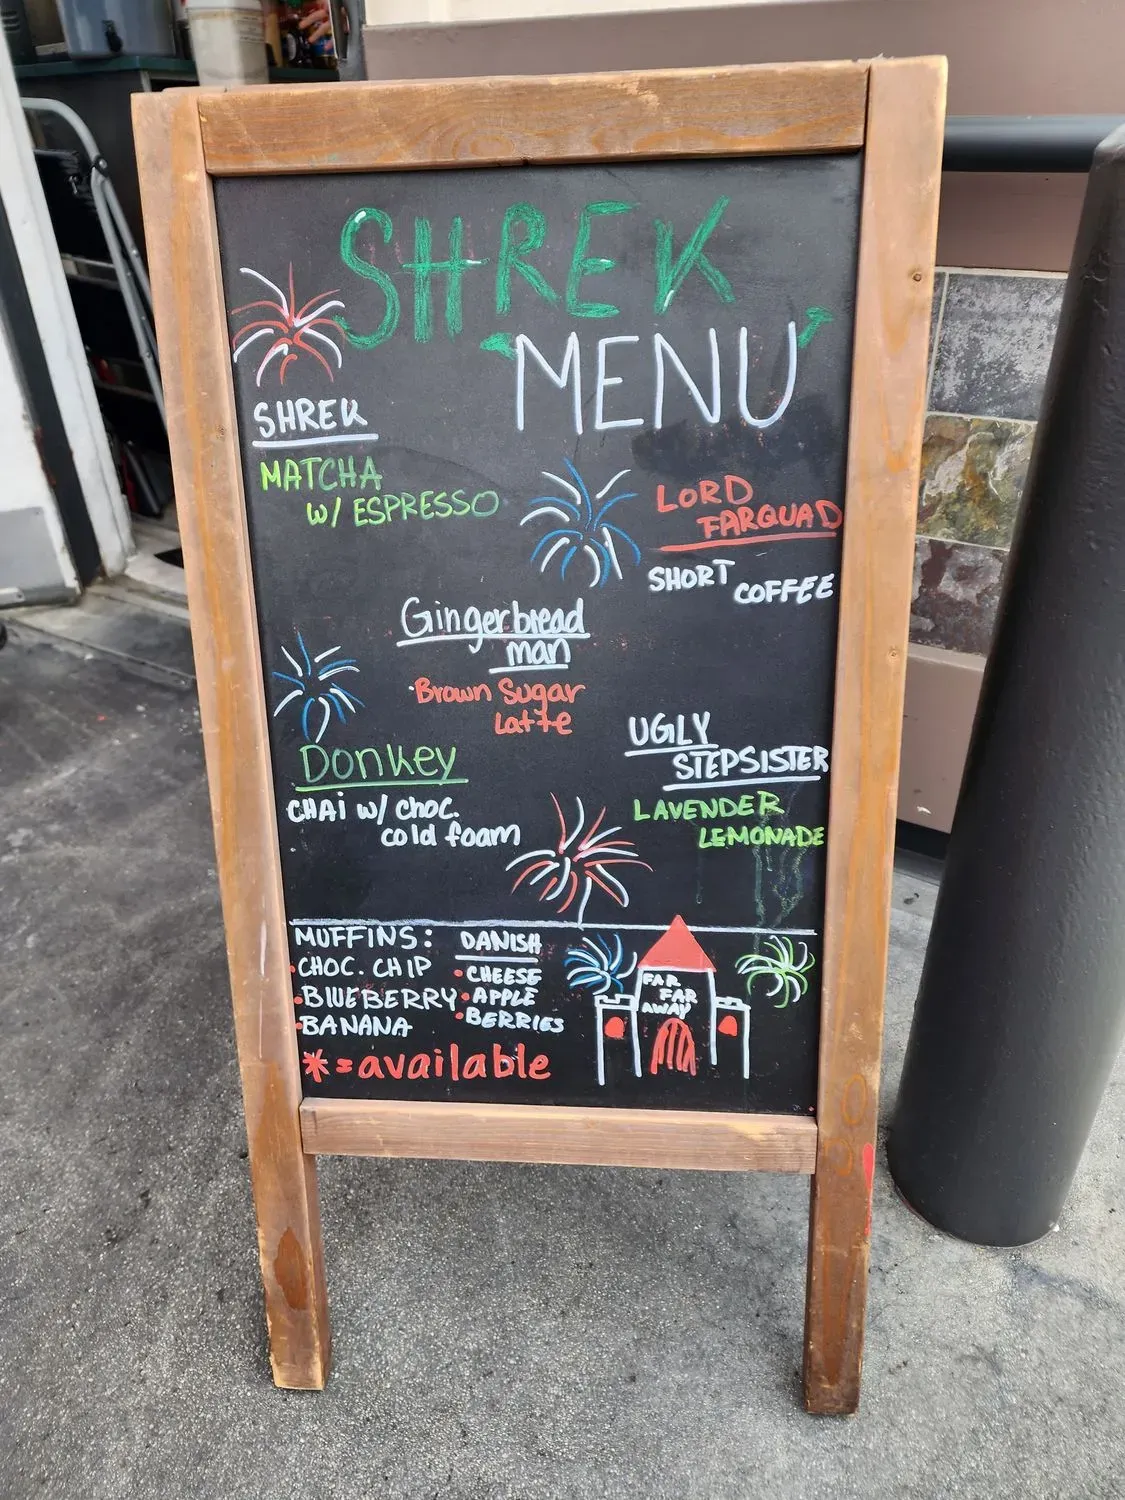 SHREK
MENU
SHREK
MATCHA
W/ ESPRESSO
LORD
FARQUAD
SHORT COFFEE
Gingerbread
man
Brown Sugar
Latte
Donkey
CHAi w/ choc.
cold foam
UGLY
STEPSISTER
LAVENDER
LEMONADE
MUFFINS:
CHOC. CHIP
BLUEBERRY
BANANA
DANISH
CHEESE
APPLE
BERRIES
* = available
FAR
FAR
AWAY